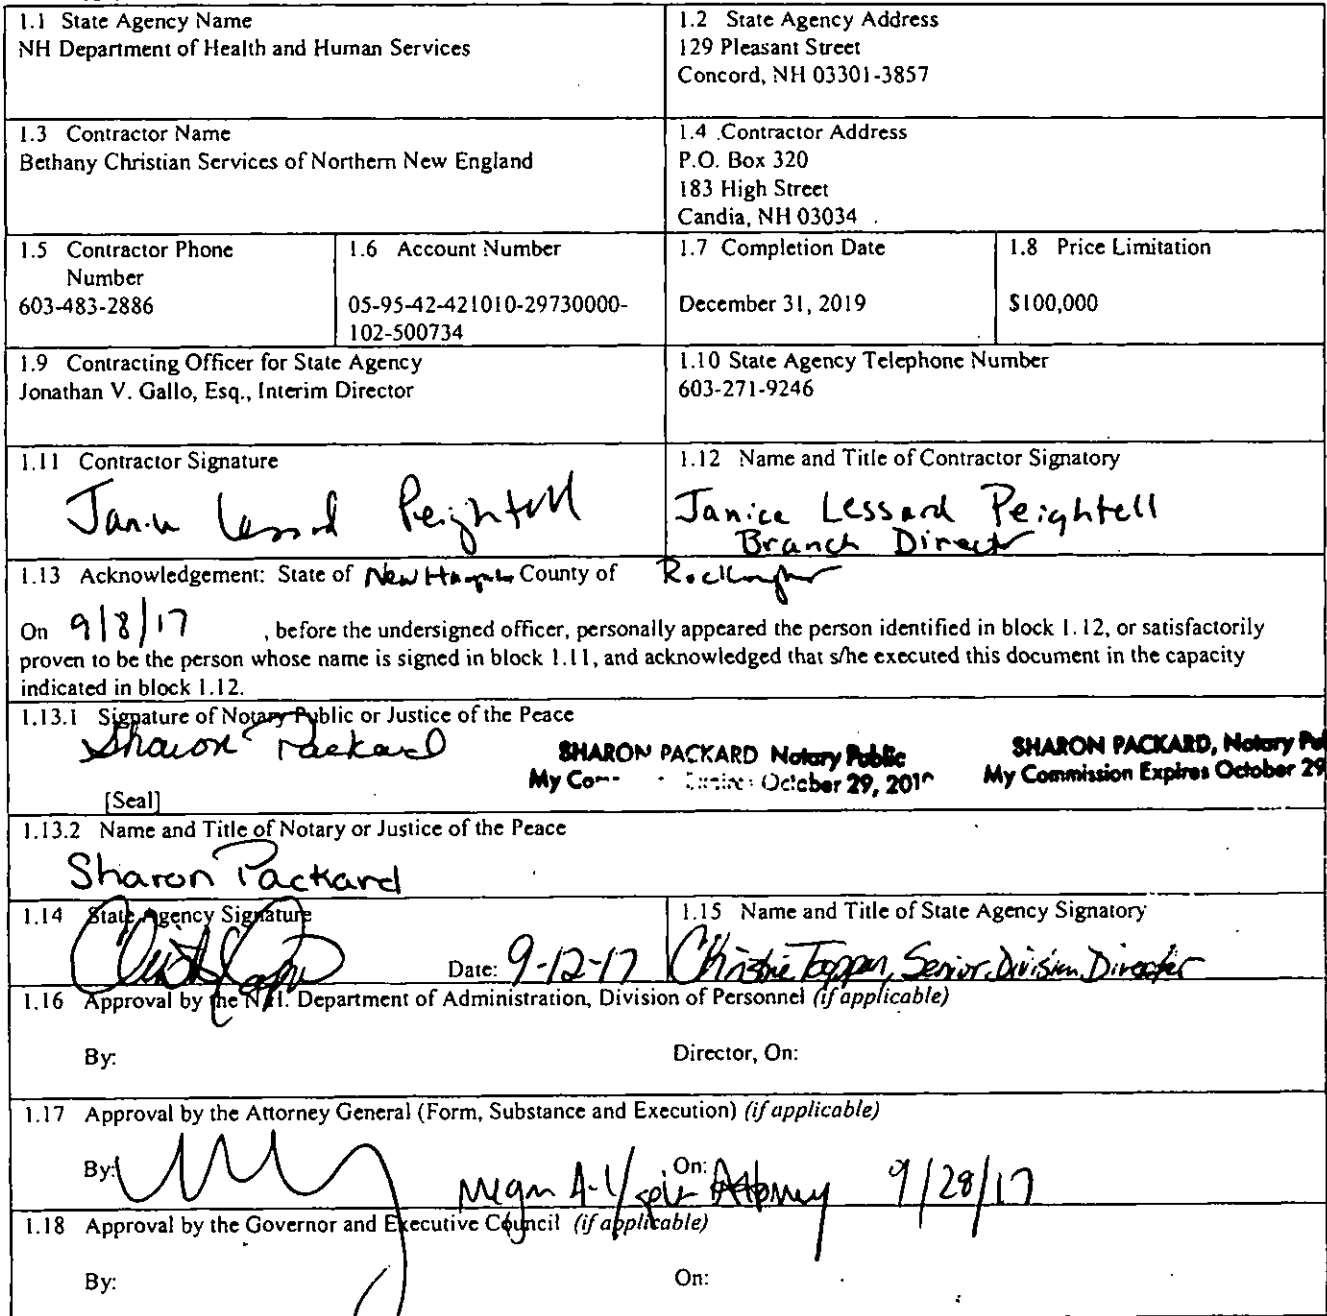 1.1 State Agency Name
NH Department of Health and Human Services
1.2 State Agency Address
129 Pleasant Street
Concord, NH 03301-3857
1.3 Contractor Name
Bethany Christian Services of Northern New England
1.4 Contractor Address
P.O. Box 320
183 High Street
Candia, NH 03034
1.5 Contractor Phone
Number
603-483-2886
1.6 Account Number
05-95-42-421010-29730000-
102-500734
1.7 Completion Date
December 31, 2019
1.8 Price Limitation
$100,000
1.9 Contracting Officer for State Agency
Jonathan V. Gallo, Esq., Interim Director
1.10 State Agency Telephone Number
603-271-9246
1.11 Contractor Signature
Janice Lessard Peightell
1.12 Name and Title of Contractor Signatory
Janice Lessard Peightell
Branch Director
1.13 Acknowledgement: State of New Hampshire County of Rockingham
On 9/8/17 , before the undersigned officer, personally appeared the person identified in block 1.12, or satisfactorily
proven to be the person whose name is signed in block 1.11, and acknowledged that s/he executed this document in the capacity
indicated in block 1.12.
1.13.1 Signature of Notary Public or Justice of the Peace
Sharon Packard
SHARON PACKARD Notary Public
My Com October 29, 201
SHARON PACKARD, Notary Pu
My Commission Expires October 29
[Seal]
1.13.2 Name and Title of Notary or Justice of the Peace
Sharon Packard
1.14 State Agency Signature
Date: 9-12-17
1.15 Name and Title of State Agency Signatory
Christie Tappan, Senior Division Director
1.16 Approval by the N.H. Department of Administration, Division of Personnel (if applicable)
By:
Director, On:
1.17 Approval by the Attorney General (Form, Substance and Execution) (if applicable)
By:
On: Attorney 9/28/17
1.18 Approval by the Governor and Executive Council (if applicable)
By:
On: